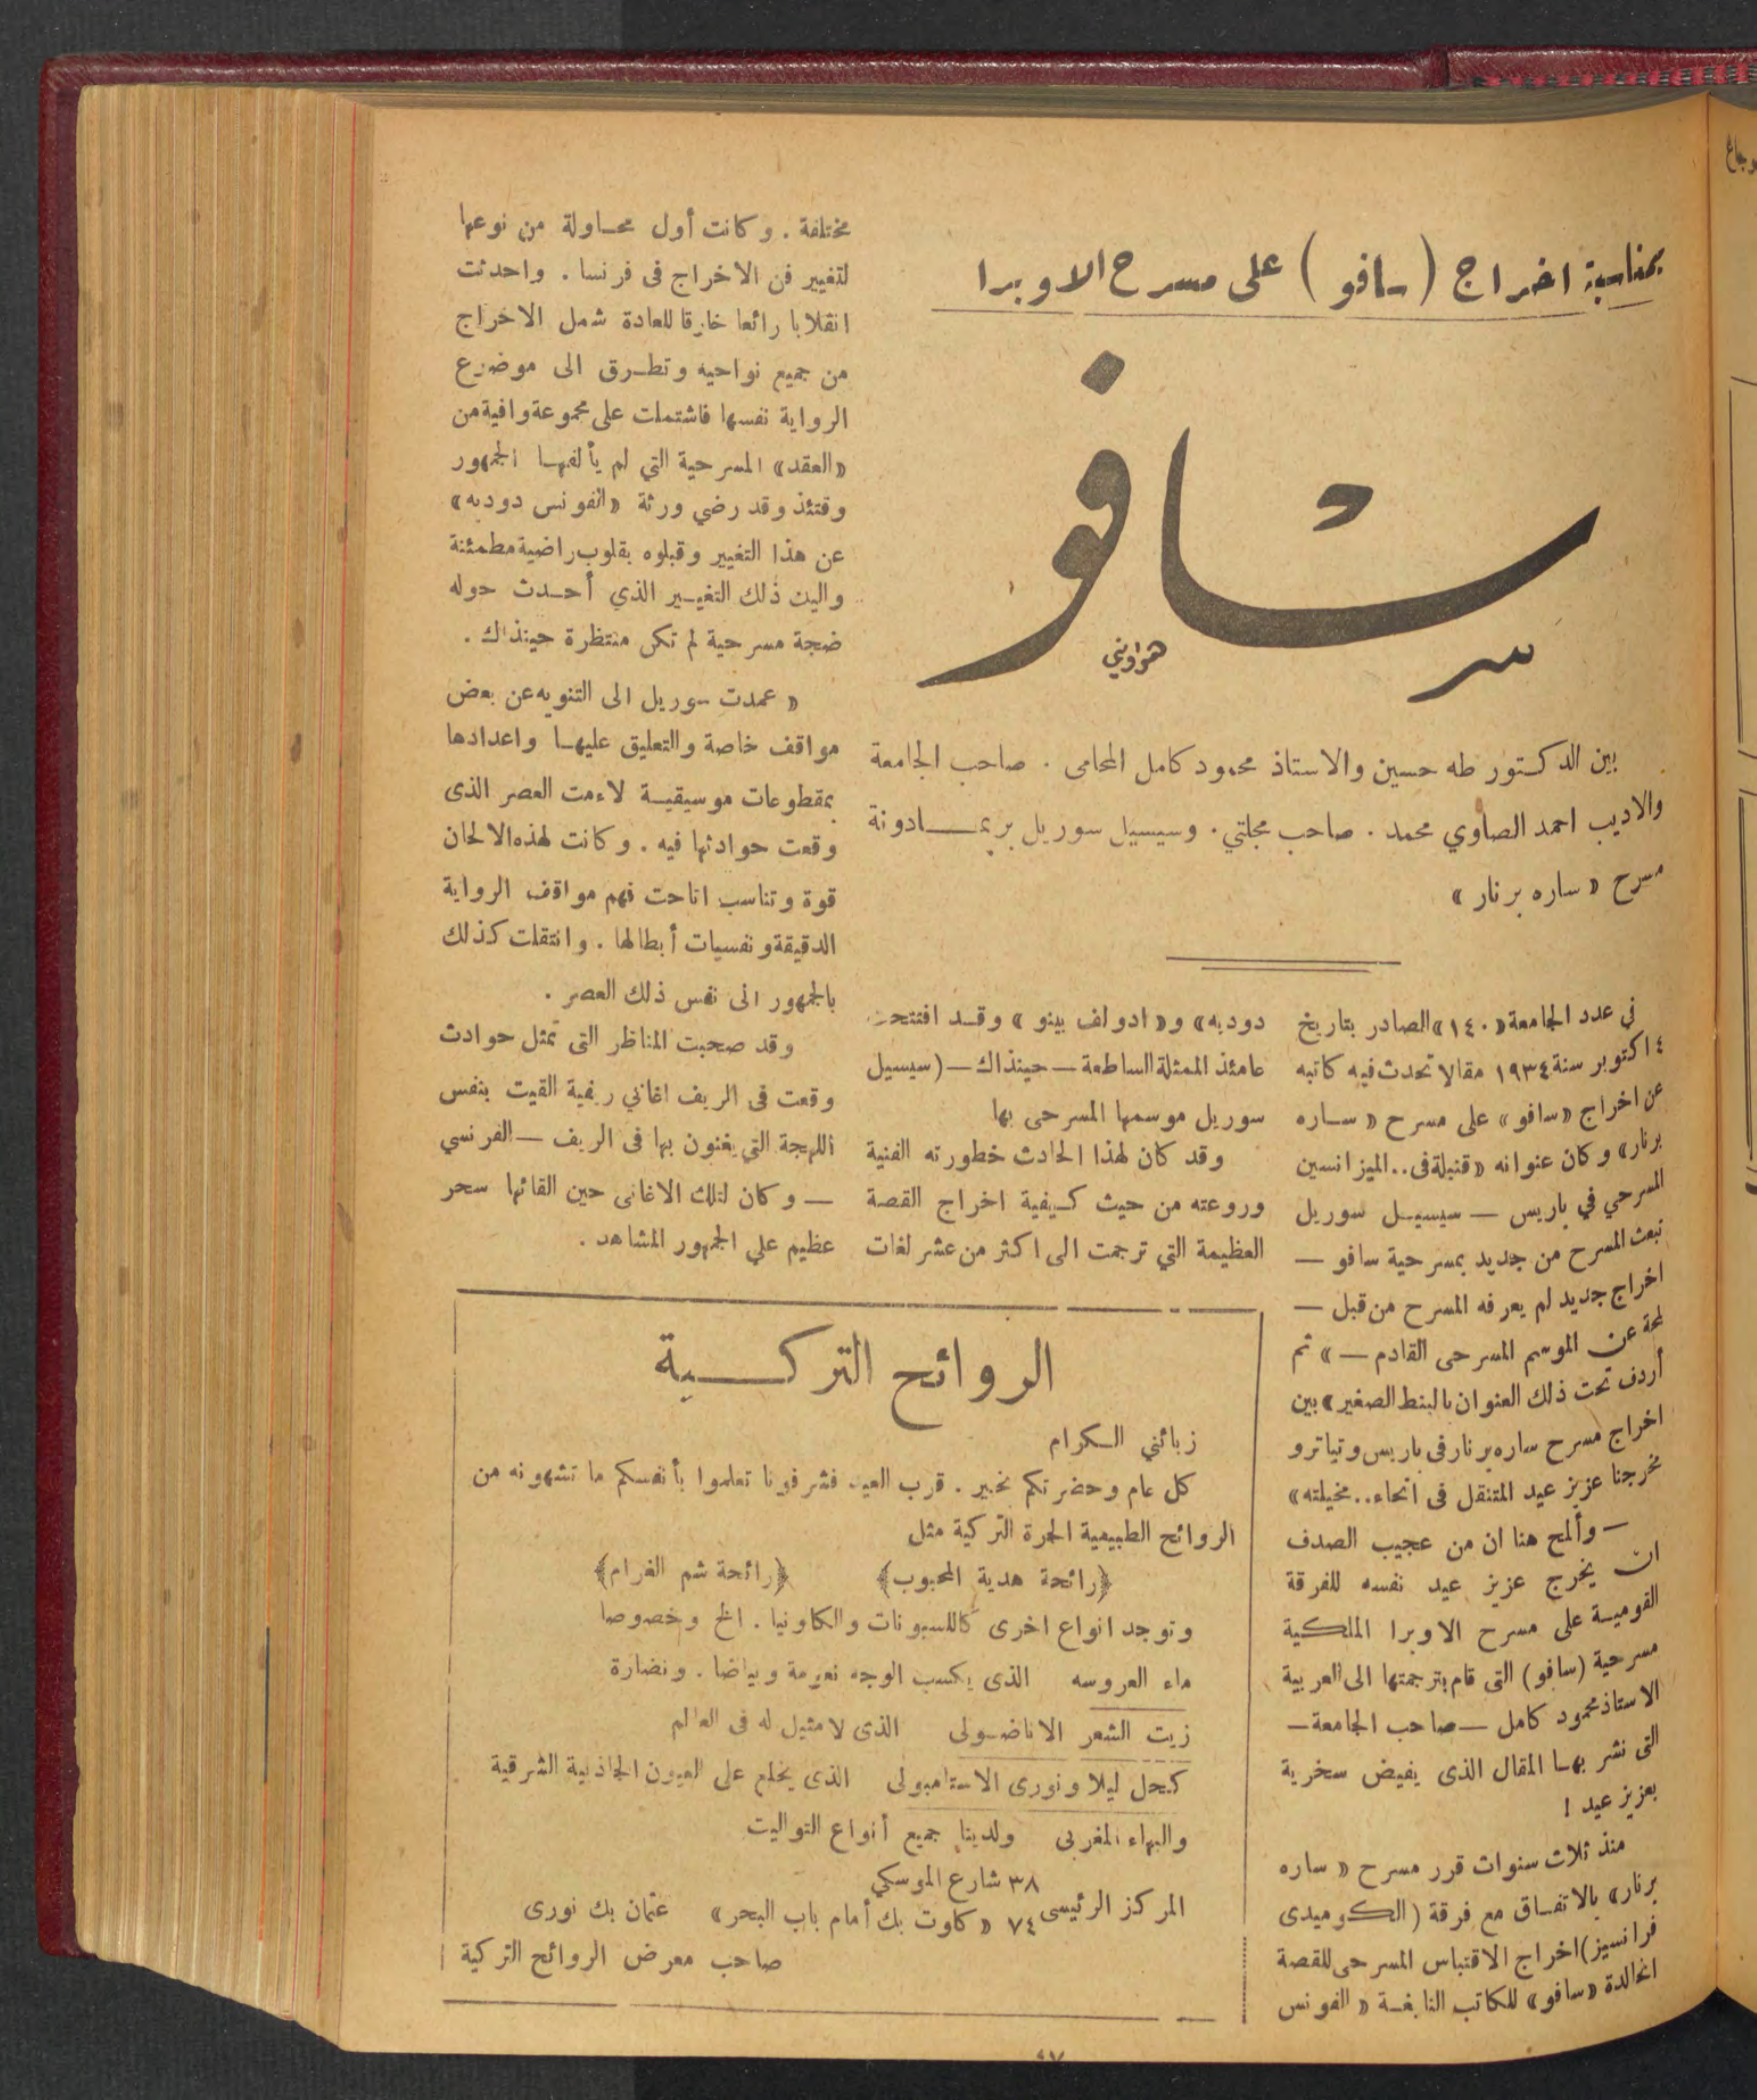 بمناسبة اخراج (سافو) على مسرح الاوبرا
سافو
هواويني
بين الدكتور طه حسين والاستاذ محمود كامل المحامى . صاحب الجامعة
والاديب احمد الصاوي محمد . صاحب مجلتي . وسيسيل سوريل بريمـادونة
مسرح « ساره برنار »
في عدد الجامعة «١٤٠» الصادر بتاريخ
٤ اكتوبر سنة ١٩٣٤ مقالا تحدث فيه كاتبه
عن اخراج «سافو» على مسرح « ساره
برنار» وكان عنوانه «قنبلة فى .. الميزانسين
المسرحي في باريس — سيسيل سوريل
تبعث المسرح من جديد بمسرحية سافو —
اخراج جديد لم يعرفه المسرح من قبل —
لمحة عن الموسم المسرحى القادم — » ثم
أردف تحت ذلك العنوان بالبنط الصغير «بين
اخراج مسرح ساره برنار فى باريس وتياترو
مخرجنا عزيز عيد المتنقل فى انحاء .. مخيلته»
— وألمح هنا ان من عجيب الصدف
ان يخرج عزيز عيد نفسه للفرقة
القومية على مسرح الاوبرا الملكية
مسرحية (سافو) التى قام بترجمتها الى العربية
الاستاذ محمود كامل — صاحب الجامعة —
التى نشر بها المقال الذى يفيض سخرية
بعزيز عيد !
منذ ثلاث سنوات قرر مسرح « ساره
برنار» بالاتفاق مع فرقة (الكوميدى
فرانسيز) اخراج الاقتباس المسرحى للقصة
الخالدة «سافو» للكاتب النابغة « الفونس
دوديه» و« ادولف بينو » وقد افتتحت
عامئذ الممثلة الساطعة — حينذاك — (سيسيل
سوريل موسمها المسرحى بها
وقد كان لهذا الحادث خطورته الفنية
وروعته من حيث كيفية اخراج القصة
العظيمة التي ترجمت الى اكثر من عشر لغات
مختلفة . وكانت أول محاولة من نوعها
لتغيير فن الاخراج فى فرنسا . واحدثت
انقلابا رائعا خارقا للعادة شمل الاخراج
من جميع نواحيه وتطرق الى موضوع
الرواية نفسها فاشتملت على مجموعة وافية من
«العقد» المسرحية التي لم يألفها الجمهور
وقتئذ وقد رضي ورثة « الفونس دوديه»
عن هذا التغيير وقبلوه بقلوب راضية مطمئنة
واليك ذلك التغيير الذي أحدث حوله
ضجة مسرحية لم تكن منتظرة حينذاك .
« عمدت سوريل الى التنويه عن بعض
مواقف خاصة والتعليق عليها واعدادها
بمقطوعات موسيقية لاءمت العصر الذى
وقعت حوادثها فيه . وكانت لهذه الالحان
قوة وتناسب اتاحت فهم مواقف الرواية
الدقيقة ونفسيات أبطالها . وانتقلت كذلك
بالجمهور الى نفس ذلك العصر .
وقد صحبت المناظر التى تمثل حوادث
وقعت فى الريف اغاني ريفية القيت بنفس
اللهجة التي يغنون بها فى الريف — الفرنسي
— وكان لتلك الاغانى حين القائها سحر
عظيم علي الجمهور المشاهد .
الروائح التركـية
زبائني الكرام
كل عام وحضرتكم بخير . قرب العيد فشرفونا تعلموا بأنفسكم ما تشهونه من
الروائح الطبيعية الحرة التركية مثل
﴿رائحة هدية المحبوب﴾ ﴿رائحة شم الغرام﴾
وتوجد انواع اخرى كاللسيونات والكلونيا . الخ وخصوصا
ماء العروسه الذى يكسب الوجه نعومة وبياضا . ونضارة
زيت الشعر الاناضولى الذى لا مثيل له فى العالم
كحل ليلا ونورى الاستامبولى الذى يخلع على العيون الجاذبية الشرقية
والبهاء المغربى ولدينا جميع أنواع التواليت
٣٨ شارع الموسكي
المركز الرئيسى ٧٤ « كلوت بك أمام باب البحر» عثمان بك نورى
صاحب معرض الروائح التركية
٤٧